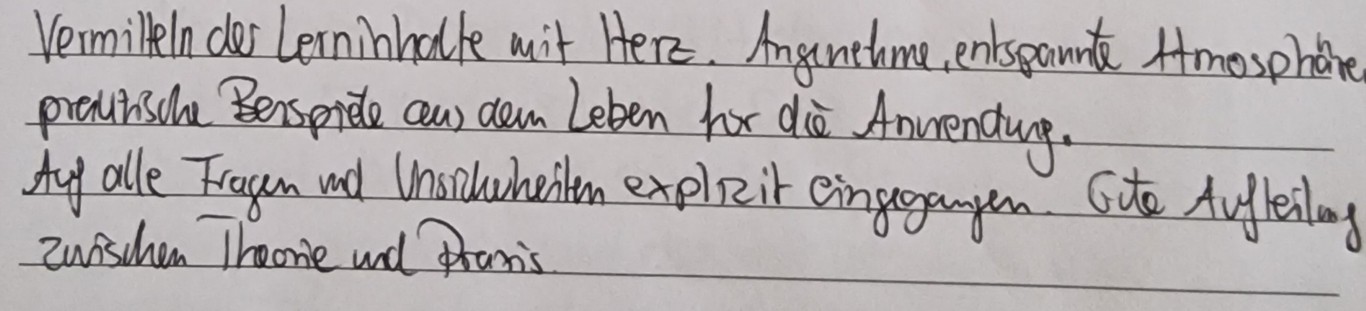 Vermitteln der Lerninhalte mit Herz. Angenehme, entspannte Atmosphäre,
praktische Beispiele aus dem Leben für die Anwendung.
Auf alle Fragen und Unsicherheiten explizit eingegangen. Gute Aufteilung
zwischen Theorie und Praxis